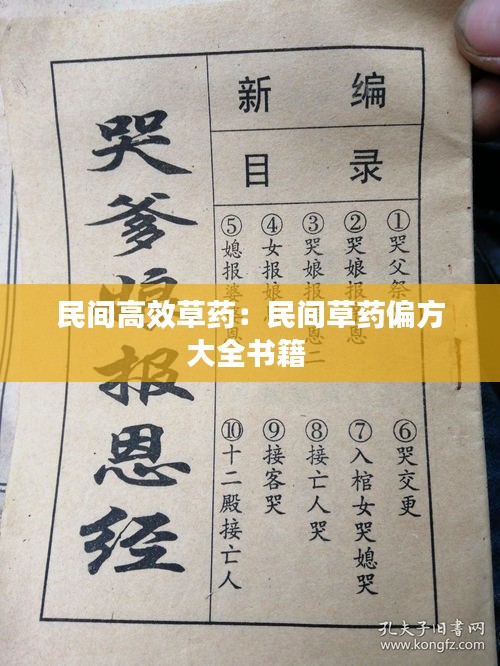 新编
目录
①哭父祭
②哭娘报
③哭娘报 二
④女报娘
⑤媳报婆
⑥哭交更
⑦入棺女哭媳哭
⑧接亡人哭
⑨接客哭
⑩十二殿接亡人
哭爹 报恩经
民间高效草药：民间草药偏方
大全书籍
孔夫子旧书网
www.kongfz.com